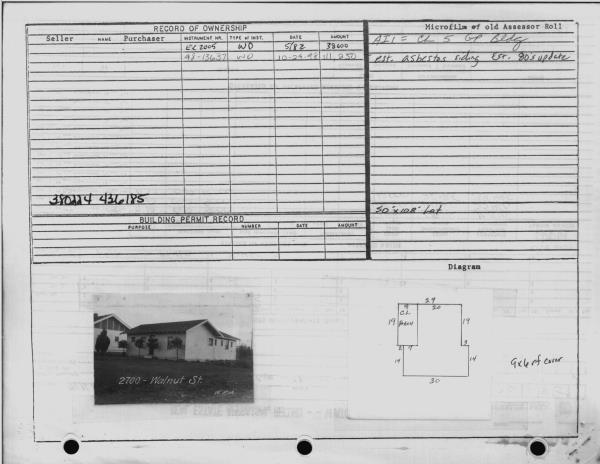 RECORD OF OWNERSHIP
Microfilm of old Assessor Roll
Seller NAME Purchaser INSTRUMENT NR. TYPE of INST. DATE AMOUNT
AI1 = CL 5 GP Bldg
WD 5/82 38600
98-13637 WD 10-29-98 111,250
est. asbestos siding Est. 80's update
380224 436185
50' x 108' Lot
BUILDING PERMIT RECORD
PURPOSE NUMBER DATE AMOUNT
Diagram
29
9 20
CL
19 19
2 7 3
14 14
30
9x6 rf cover
2700 - Walnut St.